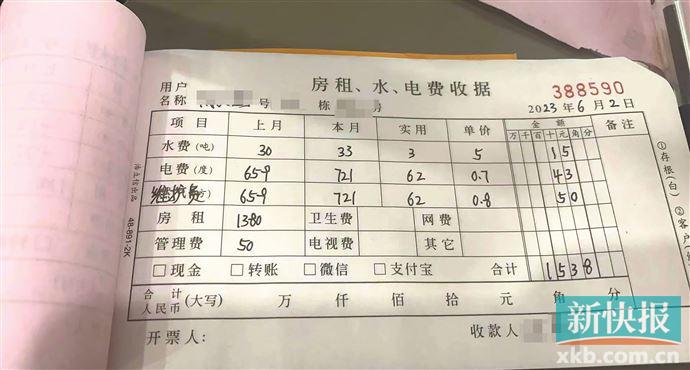 房租、水、电费收据
388590
用户
名称 号 栋 号 2023年6月2日
项目 上月 本月 实用 单价 金额 备注
万 千 百 十 元 角 分
水费(吨) 30 33 3 5 15
电费(度) 659 721 62 0.7 43
维护费 方) 659 721 62 0.8 50
房租 1380 卫生费 网费
管理费 50 电视费 其它
□现金 □转账 □微信 □支付宝 合计 1538
合计
人民币(大写) 万 仟 佰 拾 元 角 分
开票人: 收款人
浩立信出品 48-891-2K
①存根(白) ②客户
新快报
xkb.com.cn